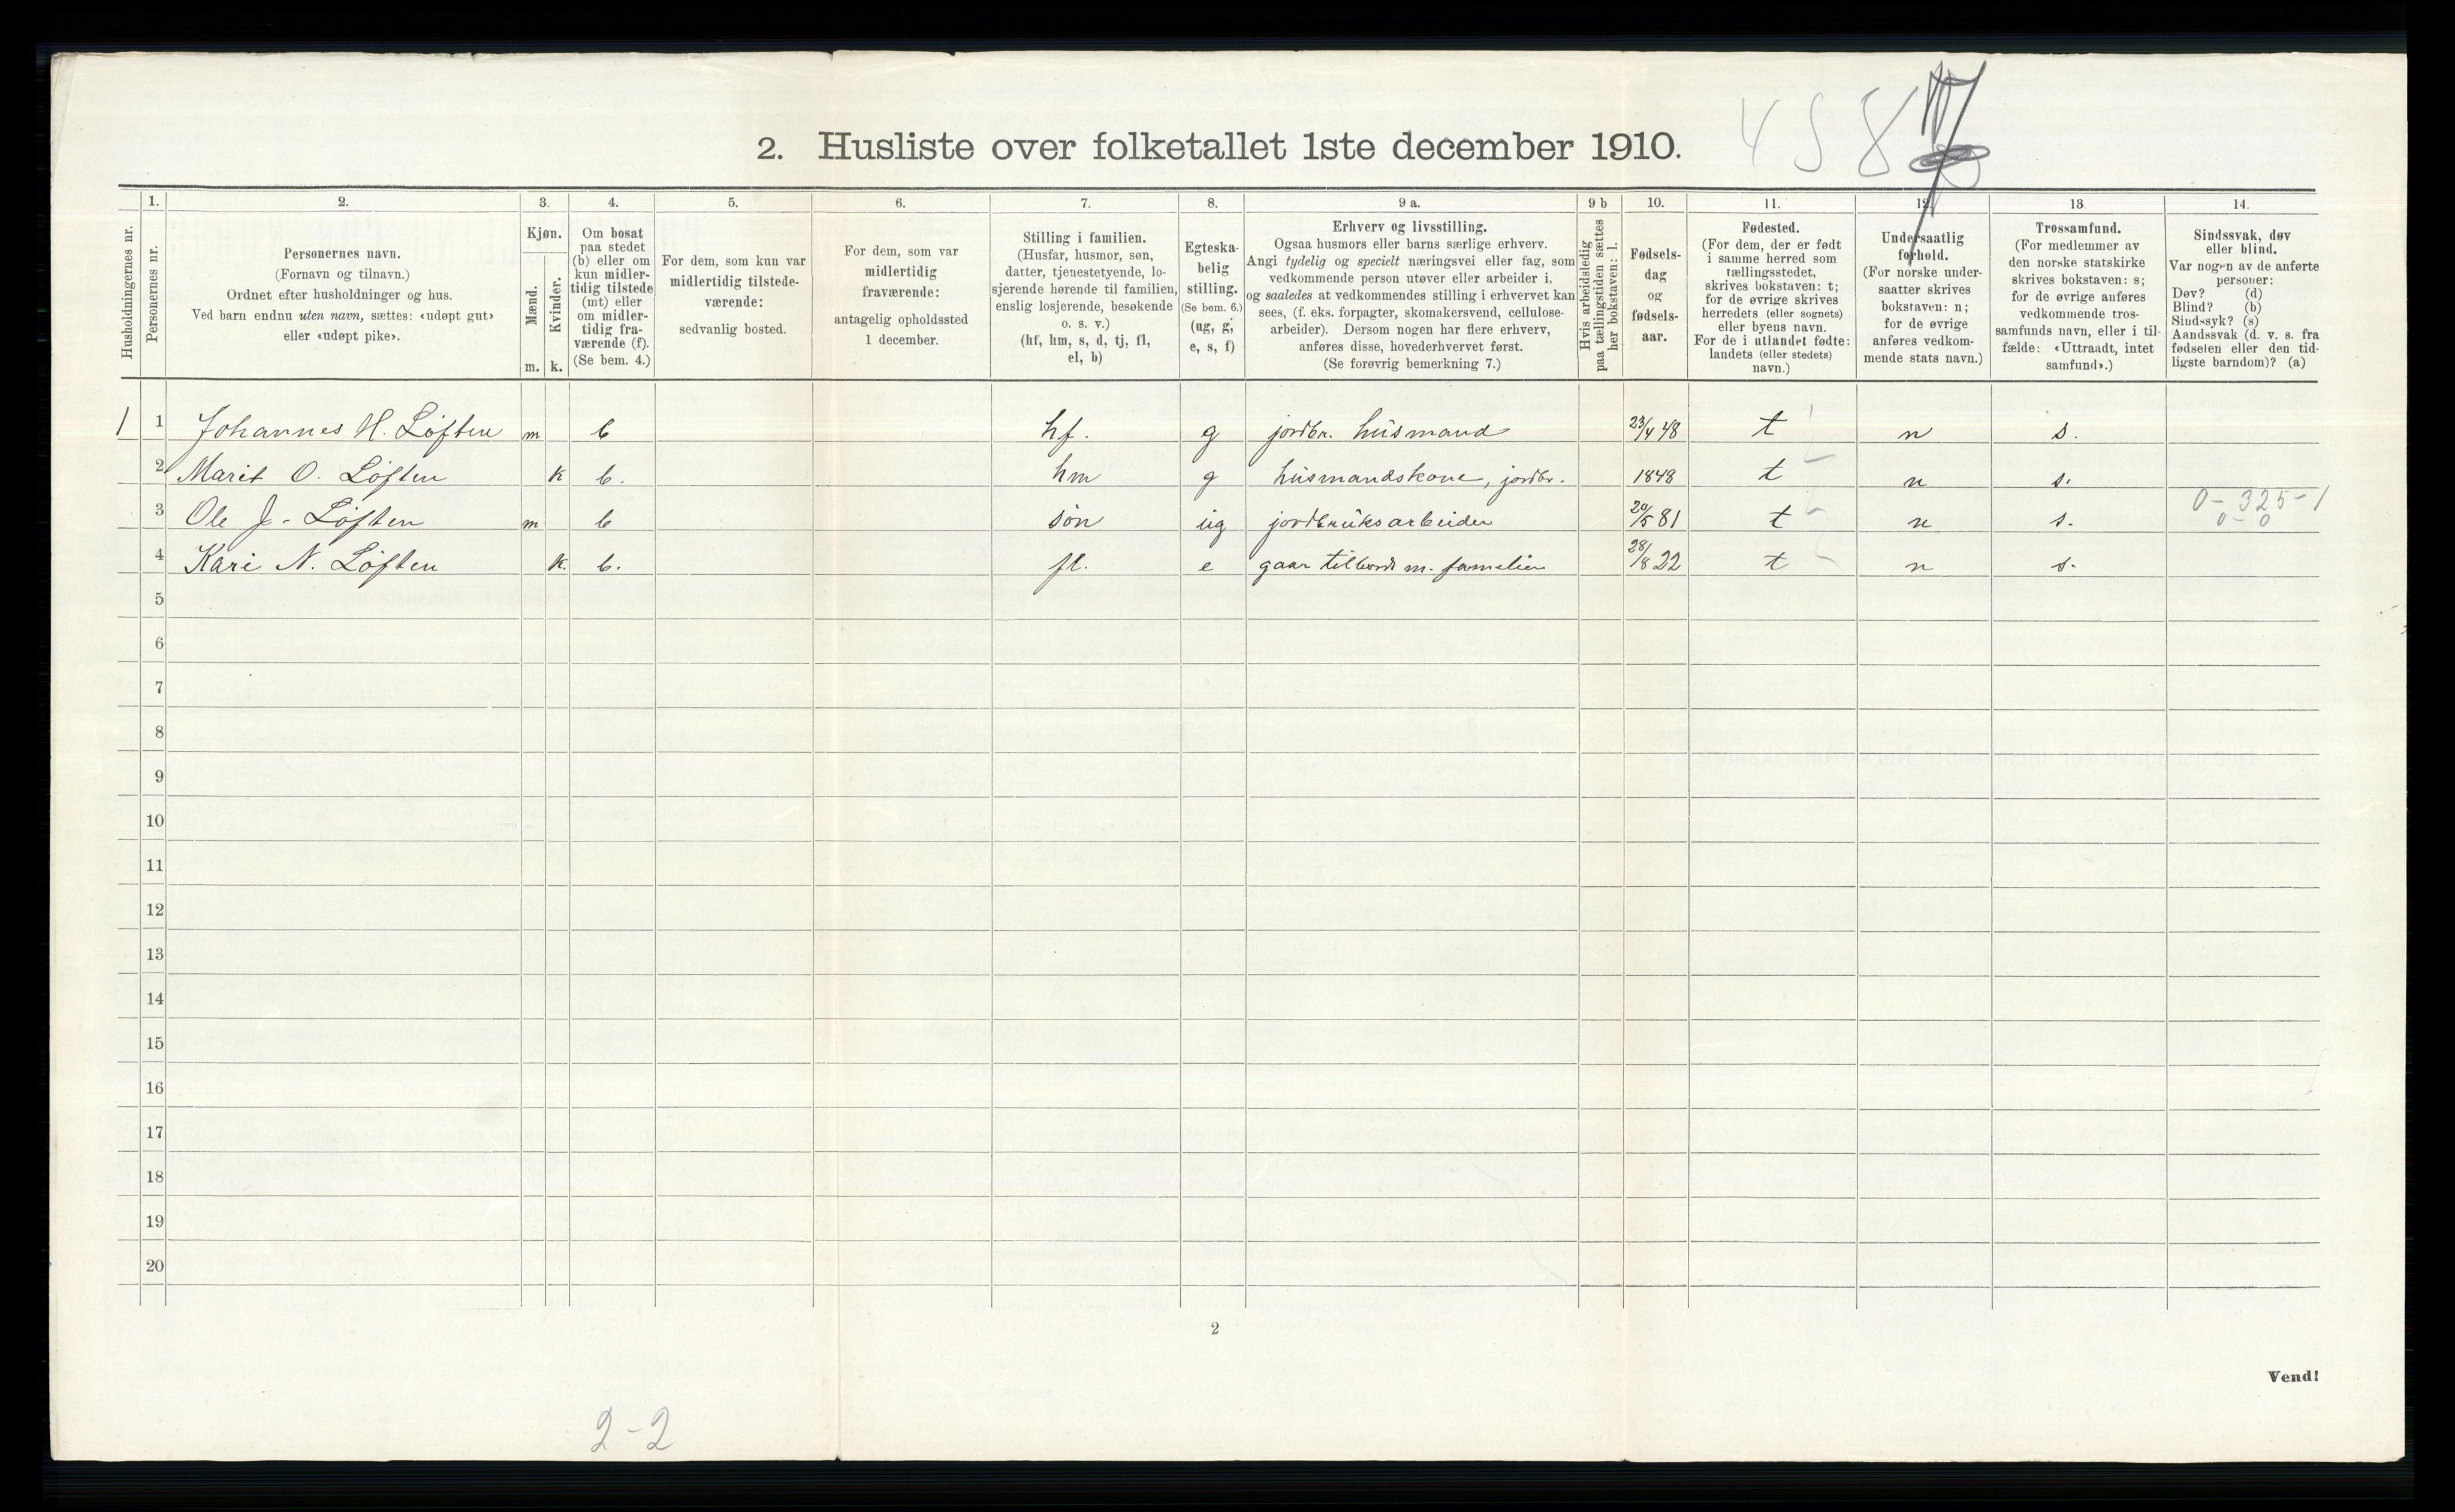 4 5 8
2. Husliste over folketallet 1ste december 1910.
Husholdningernes nr.
1.
Personernes nr.
2.
Personernes navn.
(Fornavn og tilnavn.)
Ordnet efter husholdninger og hus.
Ved barn endnu uten navn, sættes: «udøpt gut»
eller «udøpt pike».
3.
Kjøn.
Mænd.
Kvinder.
m. k.
4.
Om bosat
paa stedet
(b) eller om
kun midler-
tidig tilstede
(mt) eller
om midler-
tidig fra-
værende (f).
(Se bem. 4.)
5.
For dem, som kun var
midlertidig tilstede-
værende:
sedvanlig bosted.
6.
For dem, som var
midlertidig
fraværende:
antagelig opholdssted
1 december.
7.
Stilling i familien.
(Husfar, husmor, søn,
datter, tjenestetyende, lo-
sjerende hørende til familien,
enslig losjerende, besøkende
o. s. v.)
(hf, hm, s, d, tj, fl,
el, b)
8.
Egteska-
belig
stilling.
(Se bem. 6.)
(ug, g,
e, s, f)
9 a.
Erhverv og livsstilling.
Ogsaa husmors eller barns særlige erhverv.
Angi tydelig og specielt næringsvei eller fag, som
vedkommende person utøver eller arbeider i,
og saaledes at vedkommendes stilling i erhvervet kan
sees, (f. eks. forpagter, skomakersvend, cellulose-
arbeider). Dersom nogen har flere erhverv,
anføres disse, hovederhvervet først.
(Se forøvrig bemerkning 7.)
9 b
Hvis arbeidsledig
paa tællingstiden sættes
her bokstaven: l.
10.
Fødsels-
dag
og
fødsels-
aar.
11.
Fødested.
(For dem, der er født
i samme herred som
tællingsstedet,
skrives bokstaven: t;
for de øvrige skrives
herredets (eller sognets)
eller byens navn.
For de i utlandet fødte:
landets (eller stedets)
navn.)
12.
Undersaatlig
forhold.
(For norske under-
saatter skrives
bokstaven: n;
for de øvrige
anføres vedkom-
mende stats navn.)
13.
Trossamfund.
(For medlemmer av
den norske statskirke
skrives bokstaven: s;
for de øvrige anføres
vedkommende tros-
samfunds navn, eller i til-
fælde: «Uttraadt, intet
samfund».)
14.
Sindssvak, døv
eller blind.
Var nogen av de anførte
personer:
Døv? (d)
Blind? (b)
Sindssyk? (s)
Aandssvak (d. v. s. fra
fødselen eller den tid-
ligste barndom)? (a)
1 1 Johannes H. Løften m b hf. g jordbr. husmand 23/4 48 t n s.
2 Marit O. Løften k b. hm g husmandskone, jordbr. 1848 t n s.
3 Ole J. Løften m b søn ug jordbruksarbeider 20/5 81 t n s. 0 - 325 - 1
0 - 0
4 Kari N. Løften k. b. fl. e gaar tilbords m. familien 28/8 22 t n s.
5
6
7
8
9
10
11
12
13
14
15
16
17
18
19
20
2
Vend!
2-2